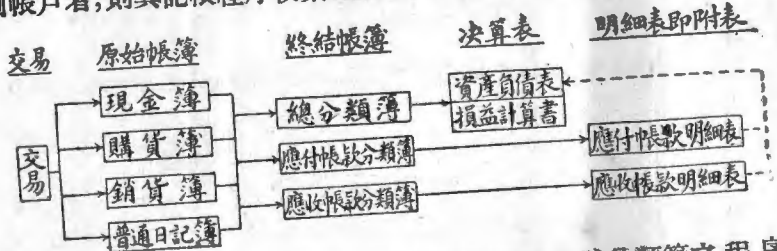 帳戶者，則其記
交易 原始帳簿 終結帳簿 決算表 明細表即附表
交易
現金簿
購貨簿
銷貨簿
普通日記簿
總分類簿
應付帳款分類簿
應收帳款分類簿
資產負債表
損益計算書
應付帳款明細表
應收帳款明細表